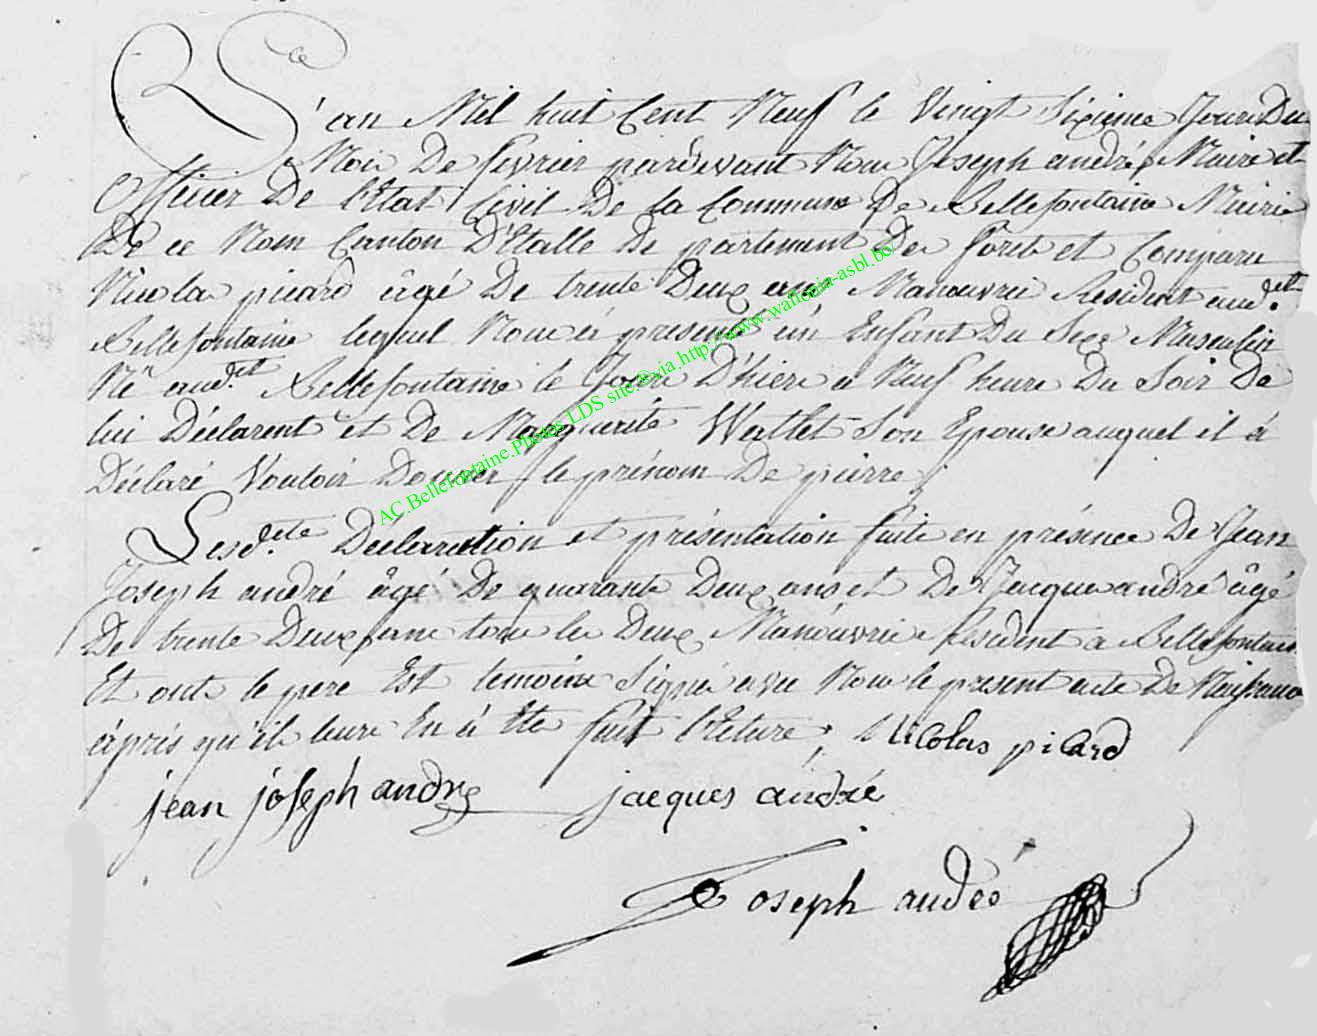 L'an Mil huit Cent Neuf le Vingt Sixieme Jour Du
Moi De fevrier pardevant Nou Joseph andré, Maire et
Officier De l'Etat Civil De la Commune De Bellefontaine Mairie
De ce Nom Canton D'Etalle De partement Des Foret et Comparu
Nicola picard âgé De trente Deux ans Manouvrie Resident aud.et
Bellefontaine lequel Nou à presenté un Enfant Du Sexe Masculin
Né aud.et Bellefontaine le Jour D'hiere a Neuf heure Du Soir De
lui Déclarent et De Marguerite Wallet Son Epouse auquel il à
Déclaré Vouloir Donner le prénom De pierre
Lesd.ete Déclaration et présentation faite en présence De Jean
Joseph andré âgé De quarante Deux ans et De Jacque andré âgé
De trente Deux ans tou les Deux Manouvrie Resident a Bellefontaine
Et ont le pere Est temoins Signé avec Nou le present acte De Naissance
àpris qu'il leure En à Eté fait l'Eture,
Nicolas picard
jean joseph andre
jacques andré
Joseph andré
AC.Bellefontaine.Photos LDS site@via.http://www.wallonia-asbl.be/